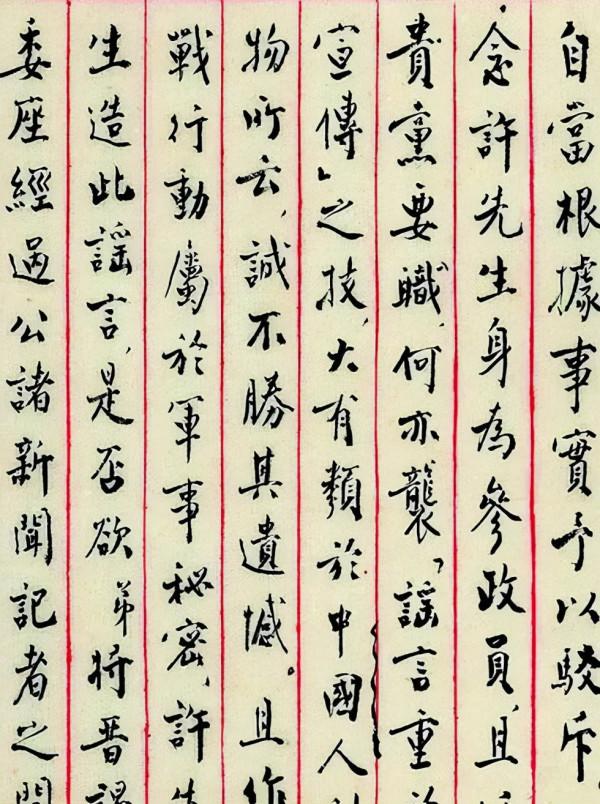 自當根據事實予以駁斥
念許先生身為參政員，且
貴黨要職，何亦襲「謠言重
宣傳」之技，大有類於中國人
物所云，誠不勝其遺憾。且作
戰行動屬於軍事秘密，許
生造此謠言，是否欲弟將晉謁
委座經過公諸新聞記者之間